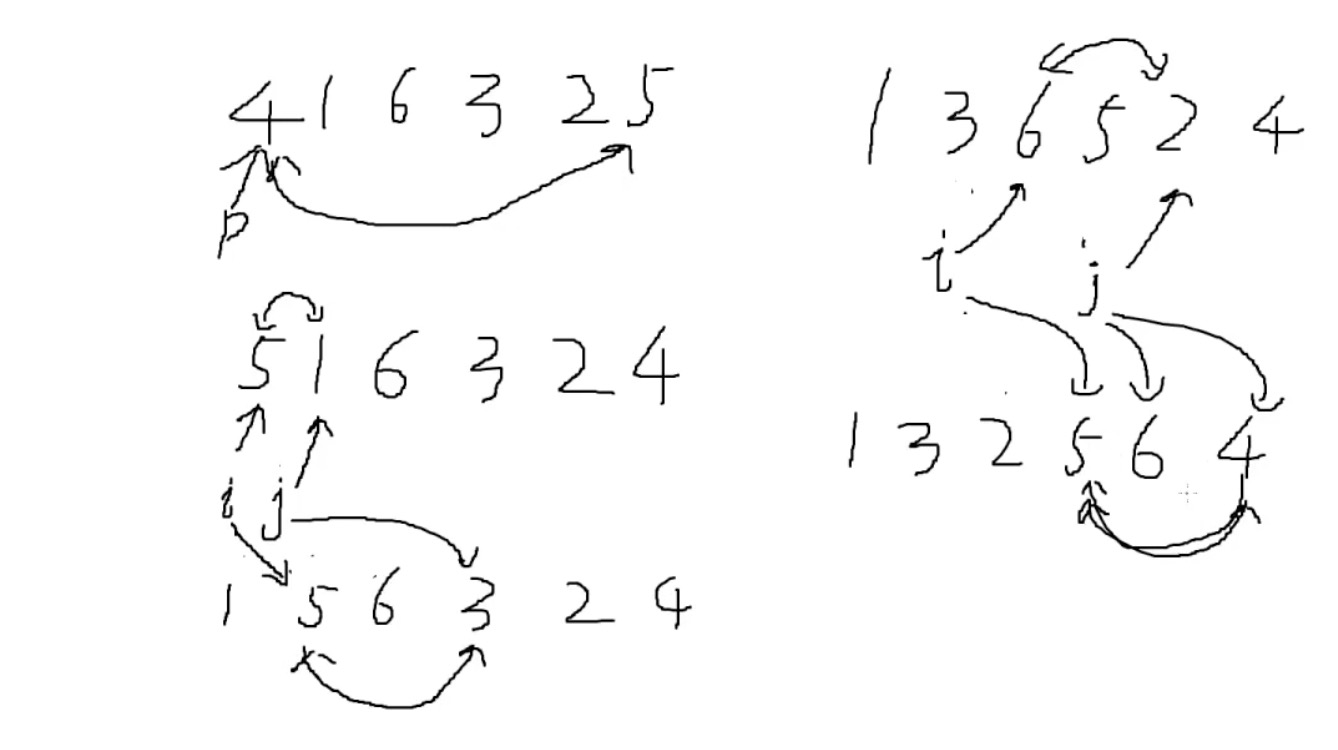 4 1 6 3 2 5
p
5 1 6 3 2 4
i j
1 5 6 3 2 4
1 3 6 5 2 4
i j
1 3 2 5 6 4